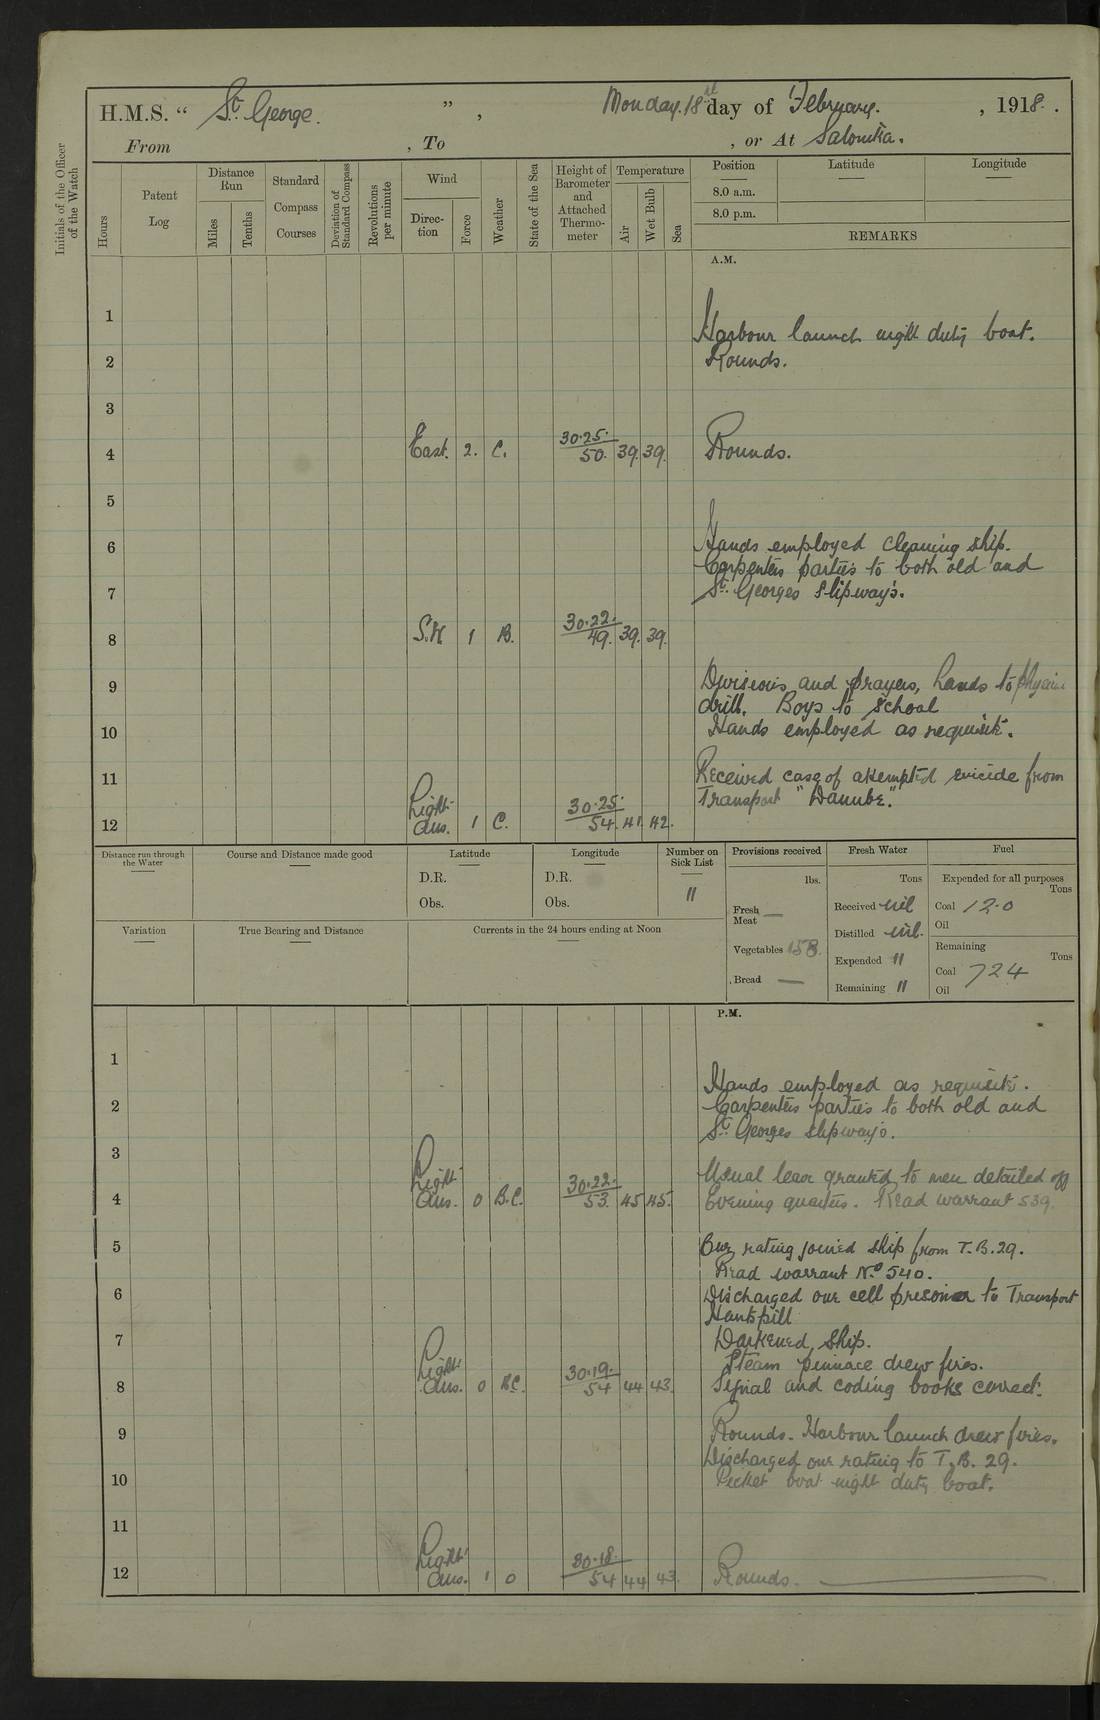 H.M.S. “ St George. ” , Monday. 18th day of February. , 1918. .
From , To , or At Salonika.
Initials of the Officer of the Watch
Hours
Patent Log
Distance Run
Miles
Tenths
Standard Compass Courses
Deviation of Standard Compass
Revolutions per minute
Wind
Direction
Force
Weather
State of the Sea
Height of Barometer and Attached Thermometer
Temperature
Air
Wet Bulb
Sea
Position
8.0 a.m.
8.0 p.m.
Latitude
Longitude
REMARKS
A.M.
1
Harbour launch night duty boat.
2 Rounds.
3
4 East. 2. C. 30.25. 50. 39. 39. Rounds.
5
6 Hands employed cleaning ship.
Carpenters parties to both old and
7 St. Georges slipways.
8 1 B. 30.22. 49. 39. 39.
9 Divisions and prayers, hands to
drill. Boys to school
10 Hands employed as requisite.
11 Received case of attempted suicide from
Transport "Danube."
12 Light airs. 1 C. 30.25. 54. 41. 42.
Distance run through the Water
Course and Distance made good
Latitude
D.R.
Obs.
Longitude
D.R.
Obs.
Number on Sick List
11
Provisions received
lbs.
Fresh Meat —
Vegetables 158.
Bread —
Fresh Water
Tons
Received nil
Distilled nil.
Expended 11
Remaining 11
Fuel
Expended for all purposes
Tons
Coal 12.0
Oil
Remaining
Tons
Coal 724
Oil
Variation
True Bearing and Distance
Currents in the 24 hours ending at Noon
P.M.
1
Hands employed as requisite.
2 Carpenters parties to both old and
St. Georges slipways.
3
Usual leave granted to men detailed off
4 Light airs. 0 B.C. 30.22. 53. 45 45. Evening quarters. Read warrant 539.
5 One rating joined ship from T.B. 29.
Read warrant No. 540.
6 Discharged one cell prisoner to Transport
Huntspill
7 Darkened ship.
Steam pinnace drew fires.
8 Light airs. 0 B.C. 30.19. 54 44 43. Signal and coding books correct.
9 Rounds. Harbour launch drew fires.
Discharged one rating to T.B. 29.
10 Picket boat night duty boat.
11
12 Light airs. 1 0 30.18. 54 44 43. Rounds.